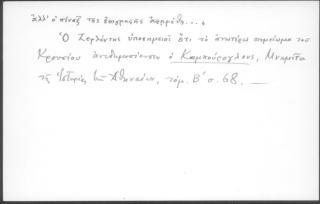 ἀλλ' ὁ πίναξ τῆς ζωγραφῆς
Ὁ Ζερλέντης ὑποσημειοῖ ὅτι τὸ ἀνωτέρω σημείωμα τοῦ
Κρουσίου ἀνεδημοσίευσεν ὁ Καμπούρογλους, Μνημεῖα
τῆς Ἱστορίας τῶν Ἀθηναίων, τόμ. Β' σ. 68. —